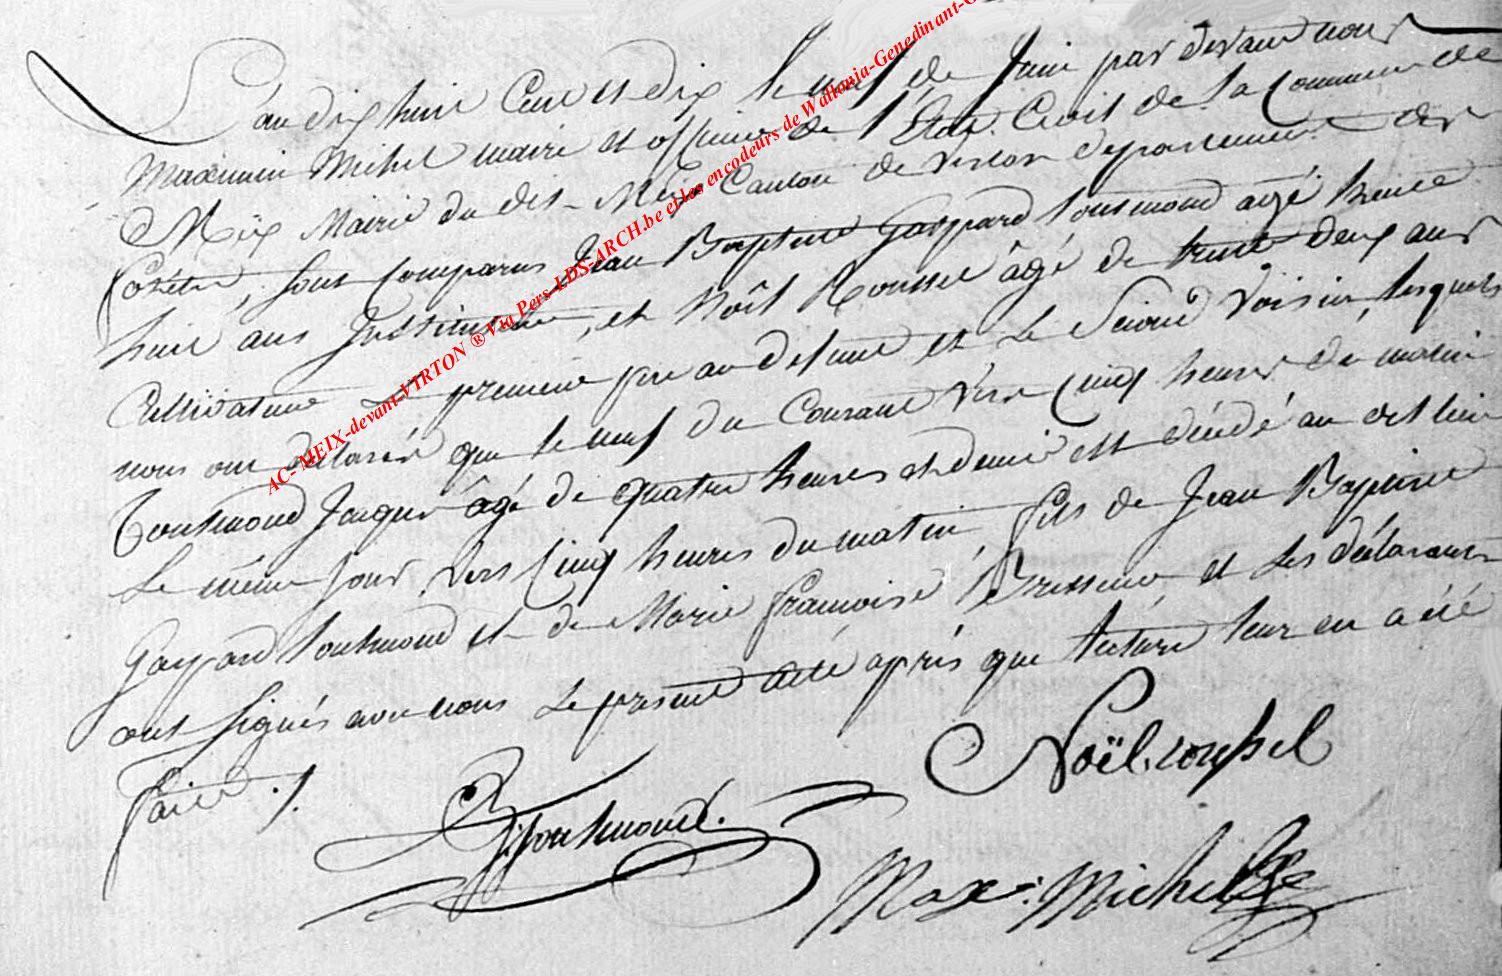 L'an dix huit Cent et dix le neuf de Juin par devant nous
Maximin Michel maire et officier de l'Etat Civil de la Commune de
Meix Mairie du dit Meix Canton de Virton departement des
forêts, sont comparus Jean Baptiste Gaspard toussmond agé trente
huit ans Instituteur, et Noël Roussel âgé de trente deux ans
Cultivateur le premier pere au defunt et le Second Voisin, lesquels
nous ont déclarés que le neuf du Courant vers Cinq heures du matin
Toussmond Jacques âgé de quatre heures et demie est décédé au dit lieu
le même jour vers Cinq heures du matin, fils de Jean Baptiste
Gaspard toussmond et de Marie françoise et les déclarants
ont signés avec nous le présent acte après que lecture leur en a été
faite ./.
Noël roussel
Toussmond.
Max: Michel
AC- MEIX-devant-VIRTON ® Via Pers-LDS-ARCH.be et les encodeurs de Wallonia-Genedinant-G